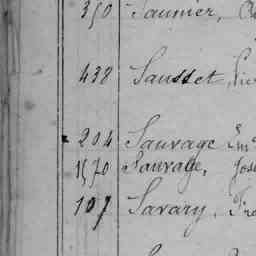 350 Saunier,
438 Sausset,
204 Sauvage Em
1570 Sauvage, Jose
107 Savary, Fra